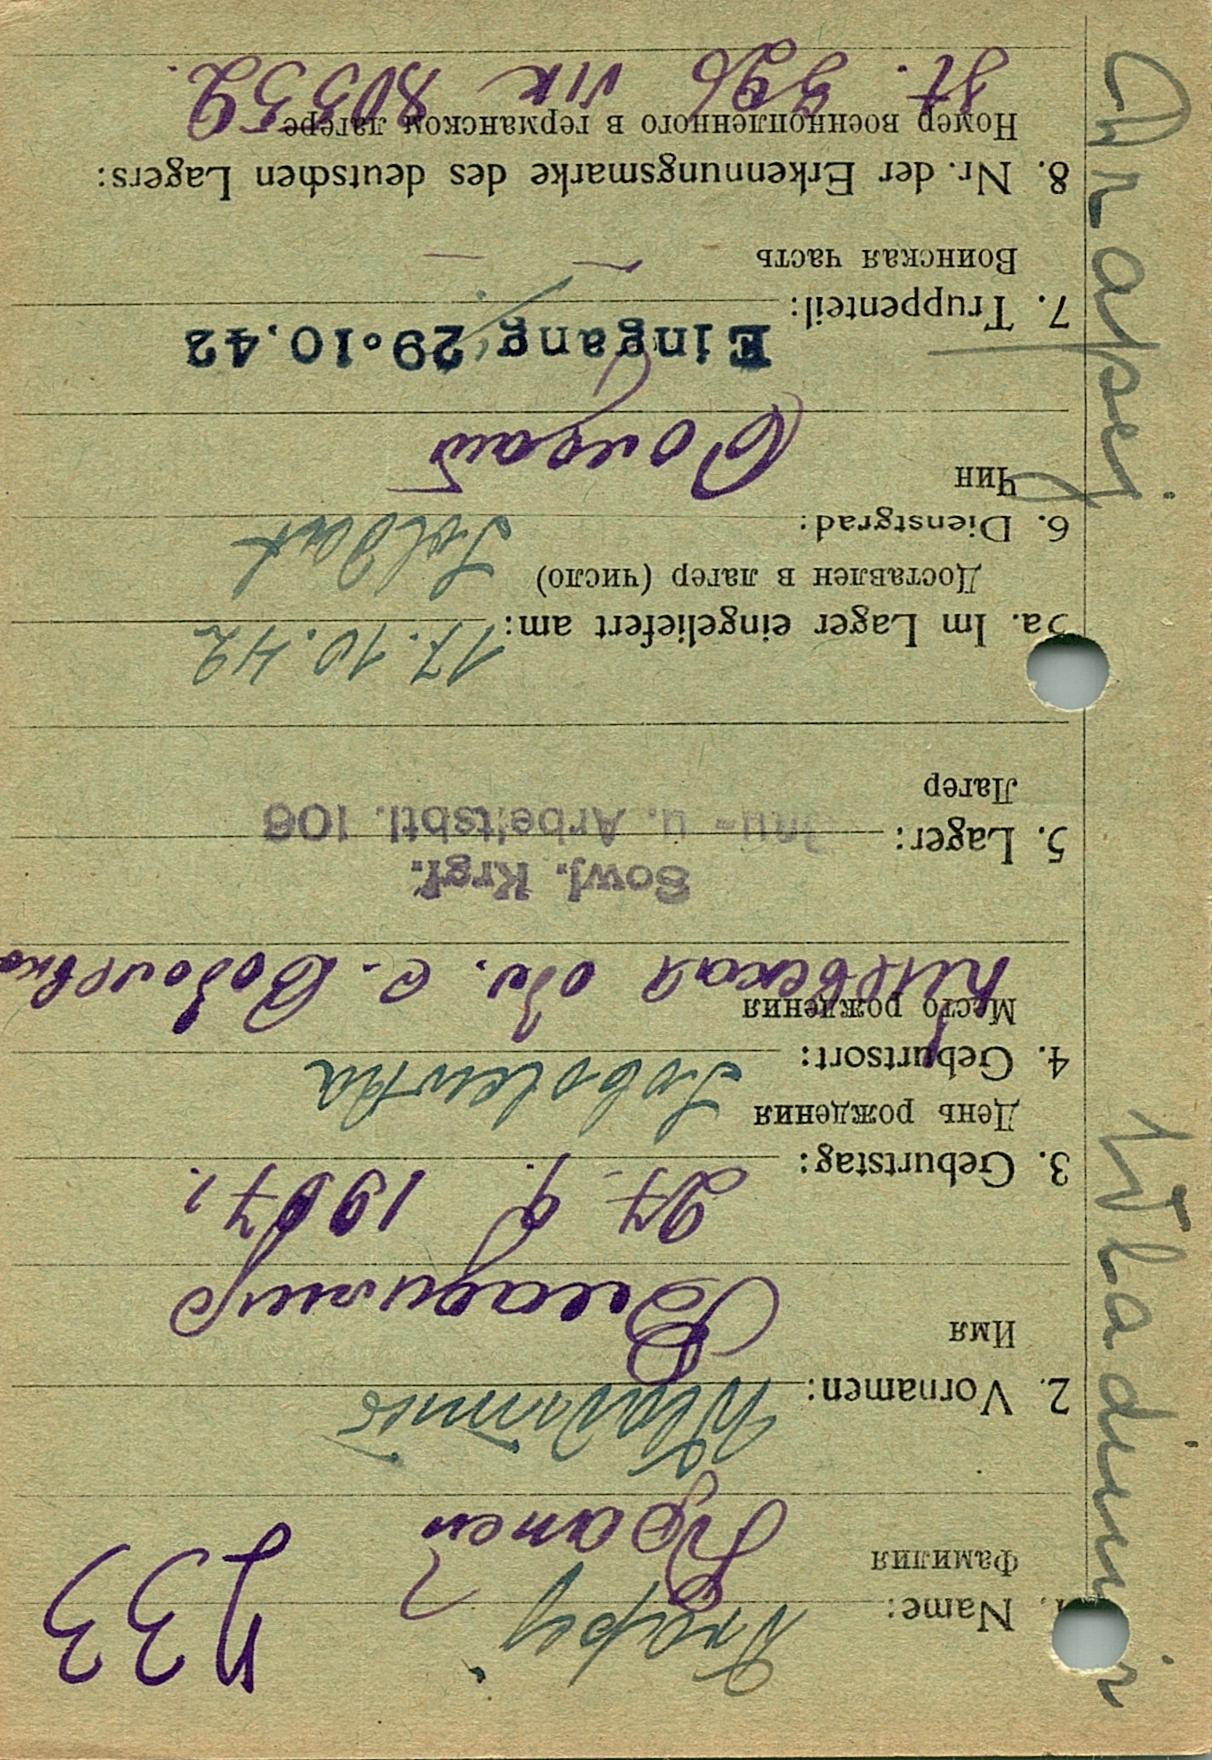 733
1. Name:
Фамилия
2. Vornamen: Wladimir
Имя Владимир
3. Geburtstag: 27. 9. 1907 г.
День рождения
4. Geburtsort: Sobolewka
Место рождения Киевская обл. с. Соболевка
Sowj. Krgf.
Bau- u. Arbeitsbtl. 106
5. Lager:
Лагер
5a. Im Lager eingeliefert am: 17.10.42
Доставлен в лагер (число)
6. Dienstgrad: Soldat
Чин Солдат
Eingang 29.10.42
7. Truppenteil:
Воинская часть — —
8. Nr. der Erkennungsmarke des deutschen Lagers:
Номер военнопленного в германском лагере
St. 326 VIK 80359.
Wladimir